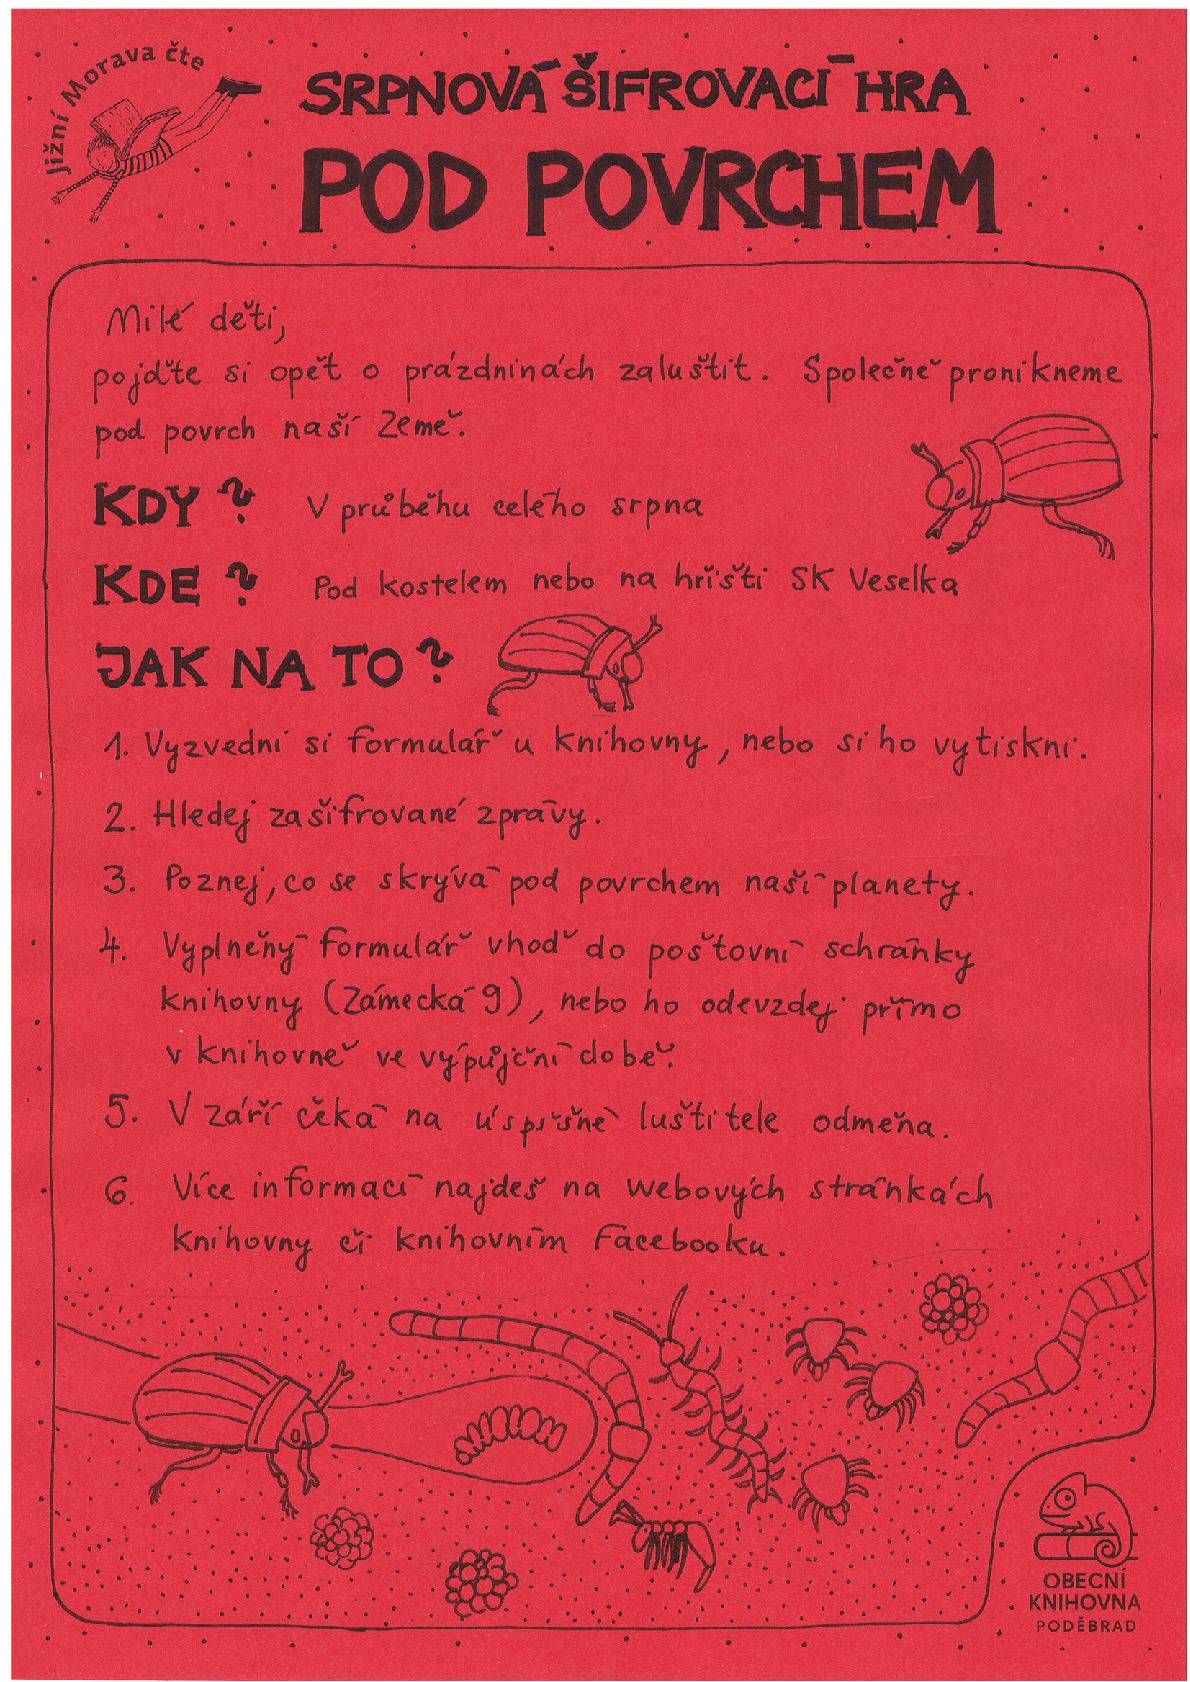 Jižní Morava čte
SRPNOVÁ ŠIFROVACÍ HRA
POD POVRCHEM
Milé děti,
pojďte si opět o prázdninách zaluštit. Společně pronikneme
pod povrch naší Země.
KDY? V průběhu celého srpna
KDE? Pod kostelem nebo na hřišti SK Veselka
JAK NA TO?
1. Vyzvedni si formulář u knihovny, nebo si ho vytiskni.
2. Hledej zašifrované zprávy.
3. Poznej, co se skrývá pod povrchem naší planety.
4. Vyplněný formulář vhoď do poštovní schránky
knihovny (Zámecká 9), nebo ho odevzdej přímo
v knihovně ve výpůjční době.
5. V září čeká na úspěšné luštitele odměna.
6. Více informací najdeš na webových stránkách
knihovny či knihovním Facebooku.
OBECNÍ
KNIHOVNA
PODĚBRAD